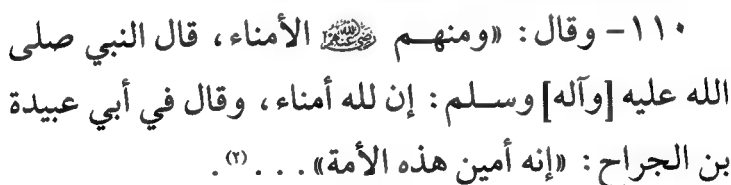 ١١٠- وقال: «ومنهم رضي الله عنهم الأمناء، قال النبي صلى
الله عليه [وآله] وسلم: إن لله أمناء، وقال في أبي عبيدة
بن الجراح: «إنه أمين هذه الأمة» . . .(٢).